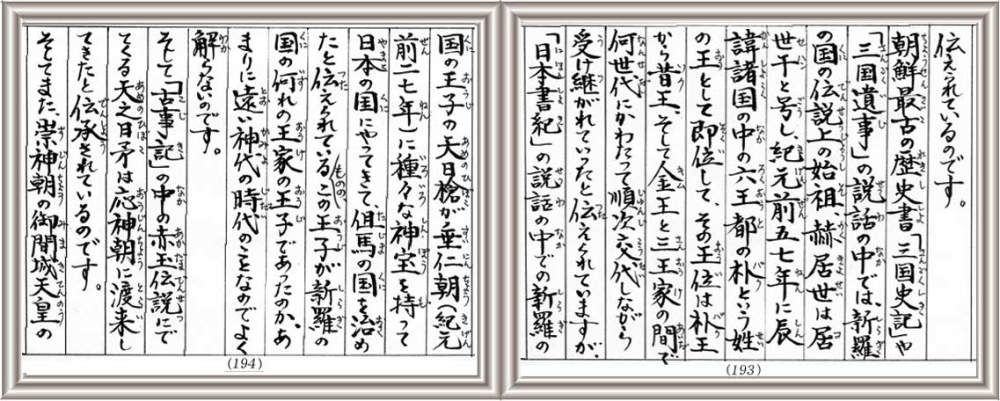 伝えられているのです。
朝鮮最古の歴史書「三国史記」や
「三国遺事」の説話の中では、新羅
の国の伝説上の始祖、赫居世は居
世干と号し、紀元前五七年に辰
諱諸国の中の六王都の朴という姓
の王として即位して、その王位は朴王
から昔王、そして金王と三王家の間で
何世代にかわたって順次交代しながら
受け継がれていったと伝えられていますが、
「日本書紀」の説話の中での新羅の
(193)
国の王子の天日槍が垂仁朝(紀元
前二七年)に種々な神宝を持って
日本の国にやってきて、但馬の国を治め
たと伝えられているものの、この王子が新羅の
国の何れの王家の王子であったのか、あ
まりに遠い神代の時代のことなのでよく
解らないのです。
そして「古事記」の中の赤玉伝説にで
てくる天之日矛は応神朝に渡来し
てきたと伝承されているのです。
そしてまた、崇神朝の御間城天皇の
(194)